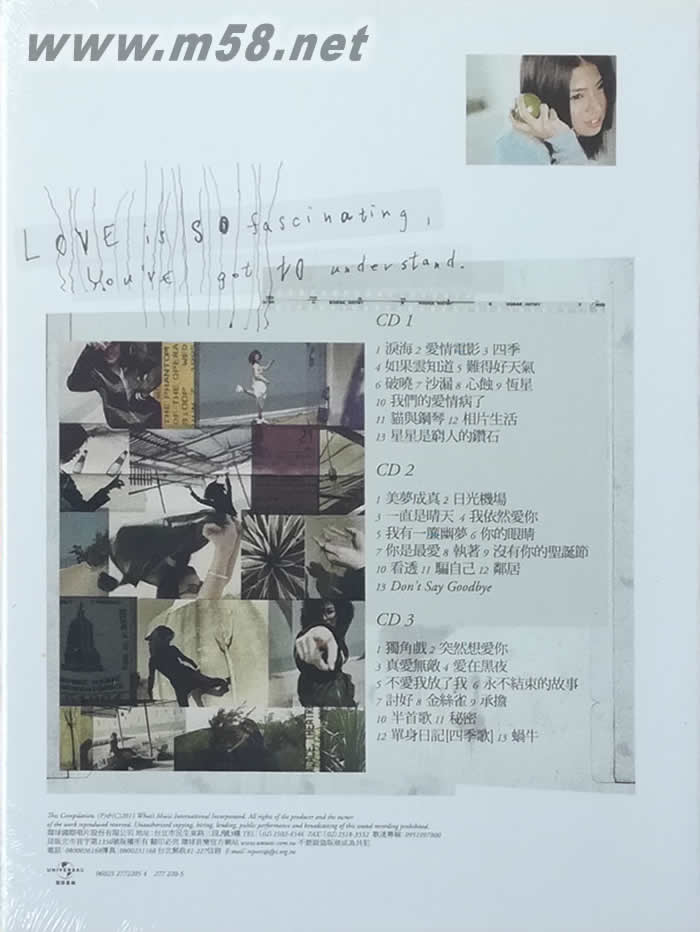 www.m58.net
LOVE is SO fascinating,
You've got to understand.
THE PHANTOM
OF THE OPERA
CD 1
1 淚海 2 愛情電影 3 四季
4 如果雲知道 5 難得好天氣
6 破曉 7 沙漏 8 心蝕 9 恆星
10 我們的愛情病了
11 貓與鋼琴 12 相片生活
13 星星是窮人的鑽石
CD 2
1 美夢成真 2 日光機場
3 一直是晴天 4 我依然愛你
5 我有一簾幽夢 6 你的眼睛
7 你是最愛 8 執著 9 沒有你的聖誕節
10 看透 11 騙自己 12 鄰居
13 Don't Say Goodbye
CD 3
1 獨角戲 2 突然想愛你
3 真愛無敵 4 愛在黑夜
5 不愛我放了我 6 永不結束的故事
7 討好 8 金絲雀 9 承擔
10 半首歌 11 秘密
12 單身日記[四季歌] 13 蝸牛
This Compilation (P)&(C)2011 What's Music International Incorporated. All rights of the producer and the owner
of the work reproduced reserved. Unauthorized copying, hiring, lending, public performance and broadcasting of this sound recording prohibited.
環球國際唱片股份有限公司
UNIVERSAL
環球音樂